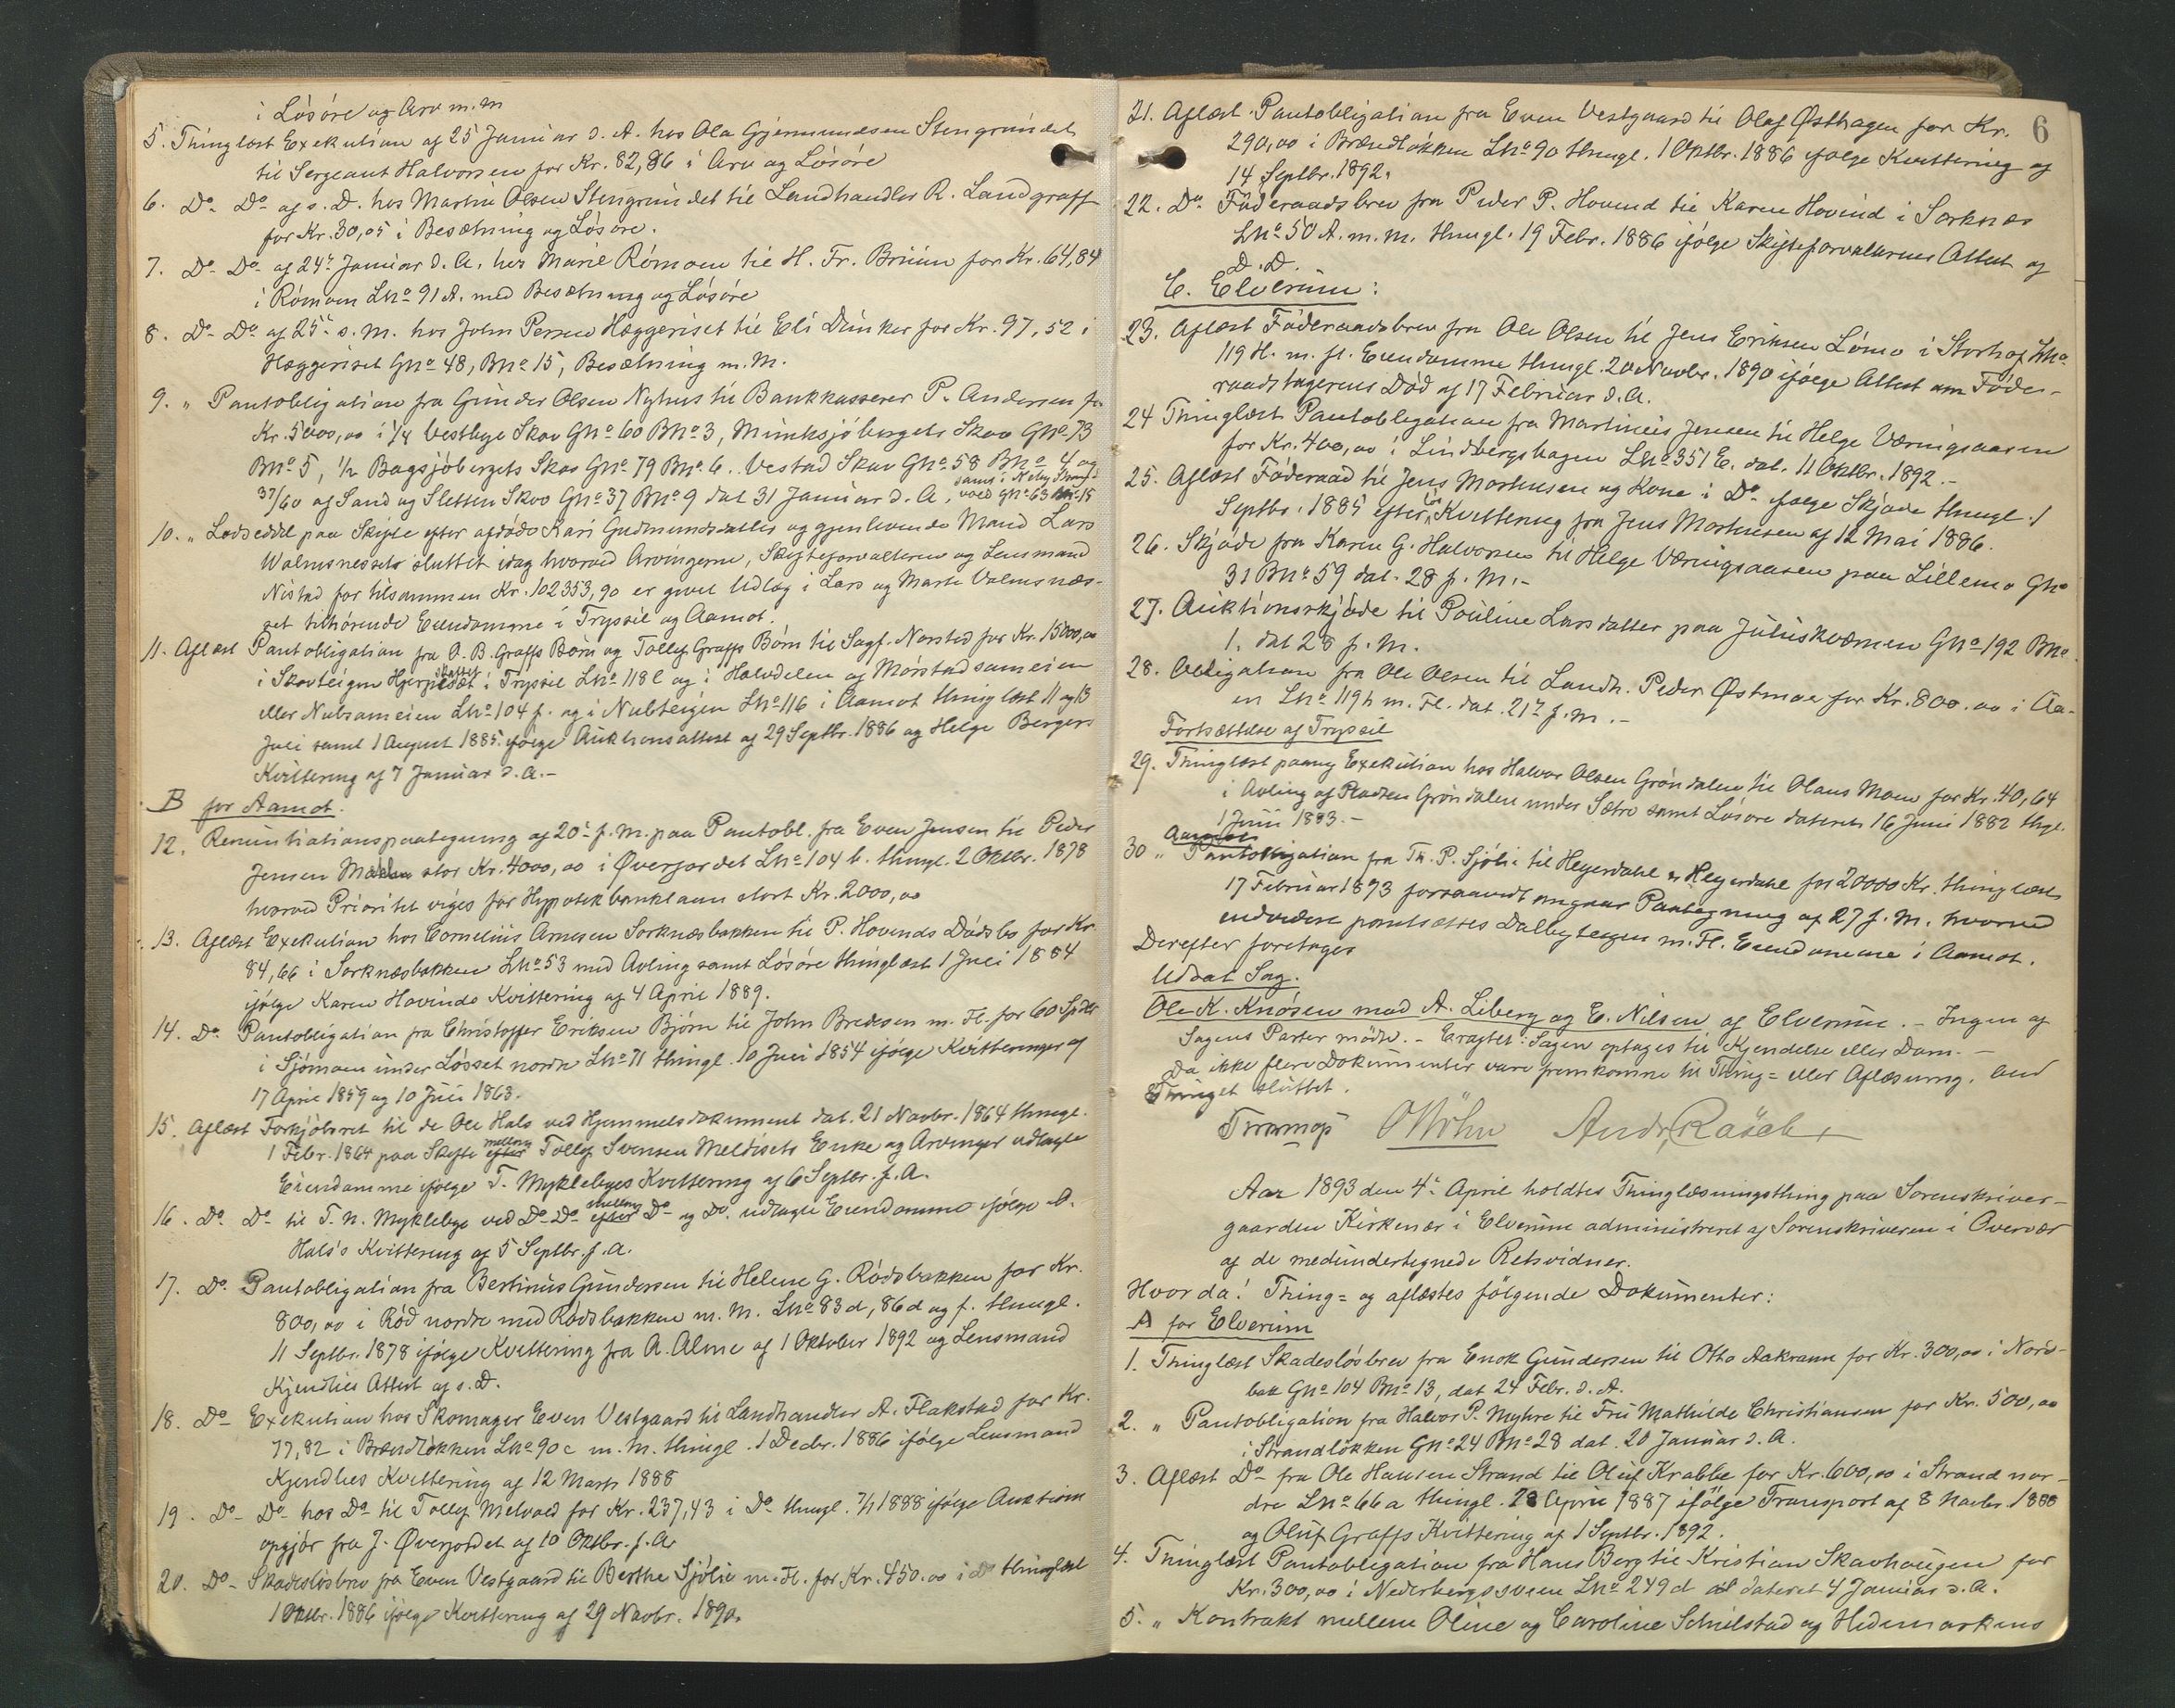 i Lösöre og Arv m.m
5. Thinglæst Exekution af 25 Januar d. A. hos Ola Gjermundsen Stengrundet
til Sergeant Halvorsen for Kr. 82,86 i Arv og Lösöre
6. Do- Do- af s. D. hos Martin Olsen Stengrundet til Landhandler R. Landgraff
for Kr. 30,05 i Besætning og Lösöre.
7. Do- Do- af 24de Januar d. A. hos Marie Römoen til H. Fr. Bruun for Kr. 64,84
i Römoen Lno 91 A. med Besætning og Lösöre
8. Do- Do- af 25de s. M. hos John Persen Hæggeriset til Eli Dunker for Kr. 97,52 i
Hæggeriset Gno 48, Bno 15, Besætning m. M.
9. " Pantobligation fra Gunder Olsen Nyhus til Bankkasserer P. Andersen for
Kr. 5000,00 i 1/4 Vestbye Skov Gno 60 Bno 3, Munksjöbergets Skov Gno 73
Bno 5, 1/2 Bagsjöbergets Skov Gno 79 Bno 6. Vestad Skov Gno 58 Bno 4 og
37/60 af Sand og Sletten Skov Gno 37 Bno 9 dat 31 Januar d. A., samt i Neby
10. " Lodseddel paa Skifte efter afdöde Kari Gudmundsdatter og gjenlevende Mand Lars
Walmsnessets sluttet idag hvorved Arvingerne, Skifteforvalteren og Lensmand
Nistad for tilsammen Kr. 102353,90 er givet Udlæg i Lars og Marte Valmsnæs-
set tilhörende Eiendomme i Trysil og Aamot.
11. Aflæst Pantobligation fra O. B. Graffs Börn og Tollef Graffs Börn til Sagf. Norstad for Kr. 15000,00
i Skovteigen Hjerpesæt i Tryssil Lno 118 l og i Halvdelen af Mörstadsameien
eller Nubsameien Lno 104 f. og i Nubteigen Lno 116 i Aamot thinglæst 11 og 13
Juli samt 1 August 1885 ifölge Auktionsattest af 29 Septbr. 1886 og Helge Bergers
Kvittering af 7 Januar d. A.-
B for Aamot.
12. Renuntiationspaategning af 20de f. M. paa Pantobl. fra Even Jensen til Peder
Jensen stor Kr. 4000,00 i Øverjordet Lno 104 b. thingl. 2 Oktbr. 1878
hvorved Prioritet viges for Hypotekbanklaan stort Kr. 2000,00
13. Aflæst Exekution hos Cornelius Arnesen Sorknæsbakken til P. Hovends Dödsbo for Kr
84,66 i Sorknæsbakken Lno 53 med Avling samt Lösöre thinglæst 1 Juli 1884
ifölge Karen Hovinds Kvittering af 4 April 1889.
14. Do Pantobligation fra Christoffer Eriksen Björn til John Bredesen m. Fl. for 60 Spdlr
i Sjömoen under Lösset nordre Lno 71 thingl. 10 Juli 1854 ifölge Kvitteringer af
17 April 1859 og 10 Juli 1863.
15. Aflæst Forkjöbsret til de Ole Hals ved Hjemmelsdokument dat. 21 Novbr. 1864 thingl.
1 Febr. 1864 paa Skifte mellem Tollef Svensen Meldisets Enke og Arvinger udlagte
Eiendomme ifölge T. Myklebyes Kvittering af 6 Septbr. f. A.
16. Do. Do. til T. N. Myklebye ved Do- Do- mellem Do- og Do. udlagte Eiendomme ifölge O.
Hals's Kvittering af 5 Septbr. f. A.
17. Do. Pantobligation fra Bertinus Gundersen til Helene G. Rödsbakken for Kr.
800,00 i Röd nordre med Rödsbakken m. M. Lno 83 d, 86 d og f. thingl.
11 Septbr. 1878 ifölge Kvittering fra A. Alme af 1 Oktober 1892 og Lensmand
Kjendlies Attest af s. D.
18. Do- Exekution hos Skomager Even Vestgaard til Landhandler A. Flakstad for Kr.
77,82 i Brændlökken Lno 90 c m. m. thingl. 1 Decbr. 1886 ifölge Lensmand
Kjendlies Kvittering af 12 Marts 1888
19. Do- Do- hos Do- til Tollef Melvold for Kr. 237,43 i Do- thingl. 7/1 1888 ifölge Auktions
opgjör fra J. Øverjordet af 10 Oktbr. f. A.
20. Do- Skadeslösbrev fra Even Vestgaard til Berthe Sjölie m. Fl. for Kr. 450.00 i do thinglæst
1 Oktbr. 1886 ifölge Kvittering af 29 Novbr. 1890.
6
21. Aflæst Pantobligation fra Even Vestgaard til Olaf Østhagen for Kr.
290,00 i Brændlökken Lno 90 thingl. 1 Oktbr. 1886 ifölge Kvittering af
14 Septbr. 1892.
22. Do. Föderaadsbrev fra Peder P. Hovend til Karen Hovind i Sorknæs
Lno 50 A. m. m. thingl. 19 Febr. 1886 ifölge Skifteforvalterens Attest af
D. D.
C. Elverum:
23. Aflæst Föderaadsbrev fra Ole Olsen til Jens Eriksen Lömo i Storhof Lno
119 H. m. fl. Eiendomme thingl. 20 Novbr. 1890 ifölge Attest om Föde-
raadstagerens Död af 17 Februar d. A.
24 Thinglæst Pantobligation fra Martinius Jensen til Helge Væringsaasen
for Kr. 400,00 i Lindbergshagen Lno 351 E. dat. 11 Oktbr. 1892.-
25. Aflæst Föderaad til Jens Mortensen og Kone i Do. ifölge Skjöde thingl. 1
Septbr. 1885 efter Kvittering fra Jens Mortensen af 12 Mai 1886.
26. Skjöde fra Karen G. Halvorsen til Helge Væringsaasen paa Lillemo Gno
31 Bno 59 dat. 28 f. M.-
27. Auktionsskjöde til Pouline Larsdatter paa Juliuskværnen Gno 192 Bno
1. dat 28 f. m.
28. Obligation fra Ole Olsen til Landh. Peder Østmoe for Kr. 800.00 i Aa-
en Lno 119 h m. Fl. dat. 21de f. m.-
Fortsættelse af Tryssil
29. Thinglæst paany Exekution hos Halvor Olsen Gröndalen til Olaus Moen for Kr. 40,64
i Avling af Pladsen Gröndalen under Sætre samt Lösöre dateret 16 Juni 1882 thgl.
1 Juni 1883.-
Aamot
30 " Pantobligation fra Th. P. Sjöli til Heyerdahl & Heyerdahl for 20000 Kr. thinglæst
17 Februar 1893 forsaavidt angaar Paategning af 27 f. M. hvorved
endvidere pantsættes Dalbyteigen m. Fl. Eiendomme i Aamot.
Derefter foretoges
Udsat Sag.
Ole K. Knösen mod A. Liberg og E. Nilsen af Elverum.- Ingen af
Sagens Parter mödte.- Eragtet: Sagen optages til Kjendelse eller Dom.-
Da ikke flere Dokumenter vare fremkomne til Thing= eller Aflæsning, blev
Thinget sluttet.
Tvrmop O Möhn Andr. Rasch
Aar 1893 den 4de April holdtes Thinglæsningsthing paa Sorenskriver-
gaarden Kirkenær i Elverum administreret af Sorenskriveren i Overvær
af de medundertegnede Retsvidner.
Hvor da! Thing= og aflæstes fölgende Dokumenter:
A for Elverum
1. Thinglæst Skadeslösbrev fra Enok Gundersen til Otto Aakrann for Kr. 300,00 i Nord-
bak Gno 104 Bno 13, dat 24 Febr. d. A.
2. " Pantobligation fra Halvor P. Myhre til Fru Mathilde Christiansen for Kr. 500,00
i Strandlökken Gno 24 Bno 28 dat. 20 Januar d. A.
3. Aflæst Do- fra Ole Hansen Strand til Oluf Krabbe for Kr. 600,00 i Strand nor-
dre Lno 66 a thingl. 28 April 1887 ifölge Transport af 8 Novbr. 1888
og Oluf Graffs Kvittering af 1 Septbr. 1892.
4. Thinglæst Pantobligation fra Hans Berg til Kristian Skavhaugen for
Kr. 300,00 i Nederbergssveen Lno 249 d dateret 4 Januar d. A.
5. " Kontrakt mellem Oline og Caroline Schulstad og Hedemarkens